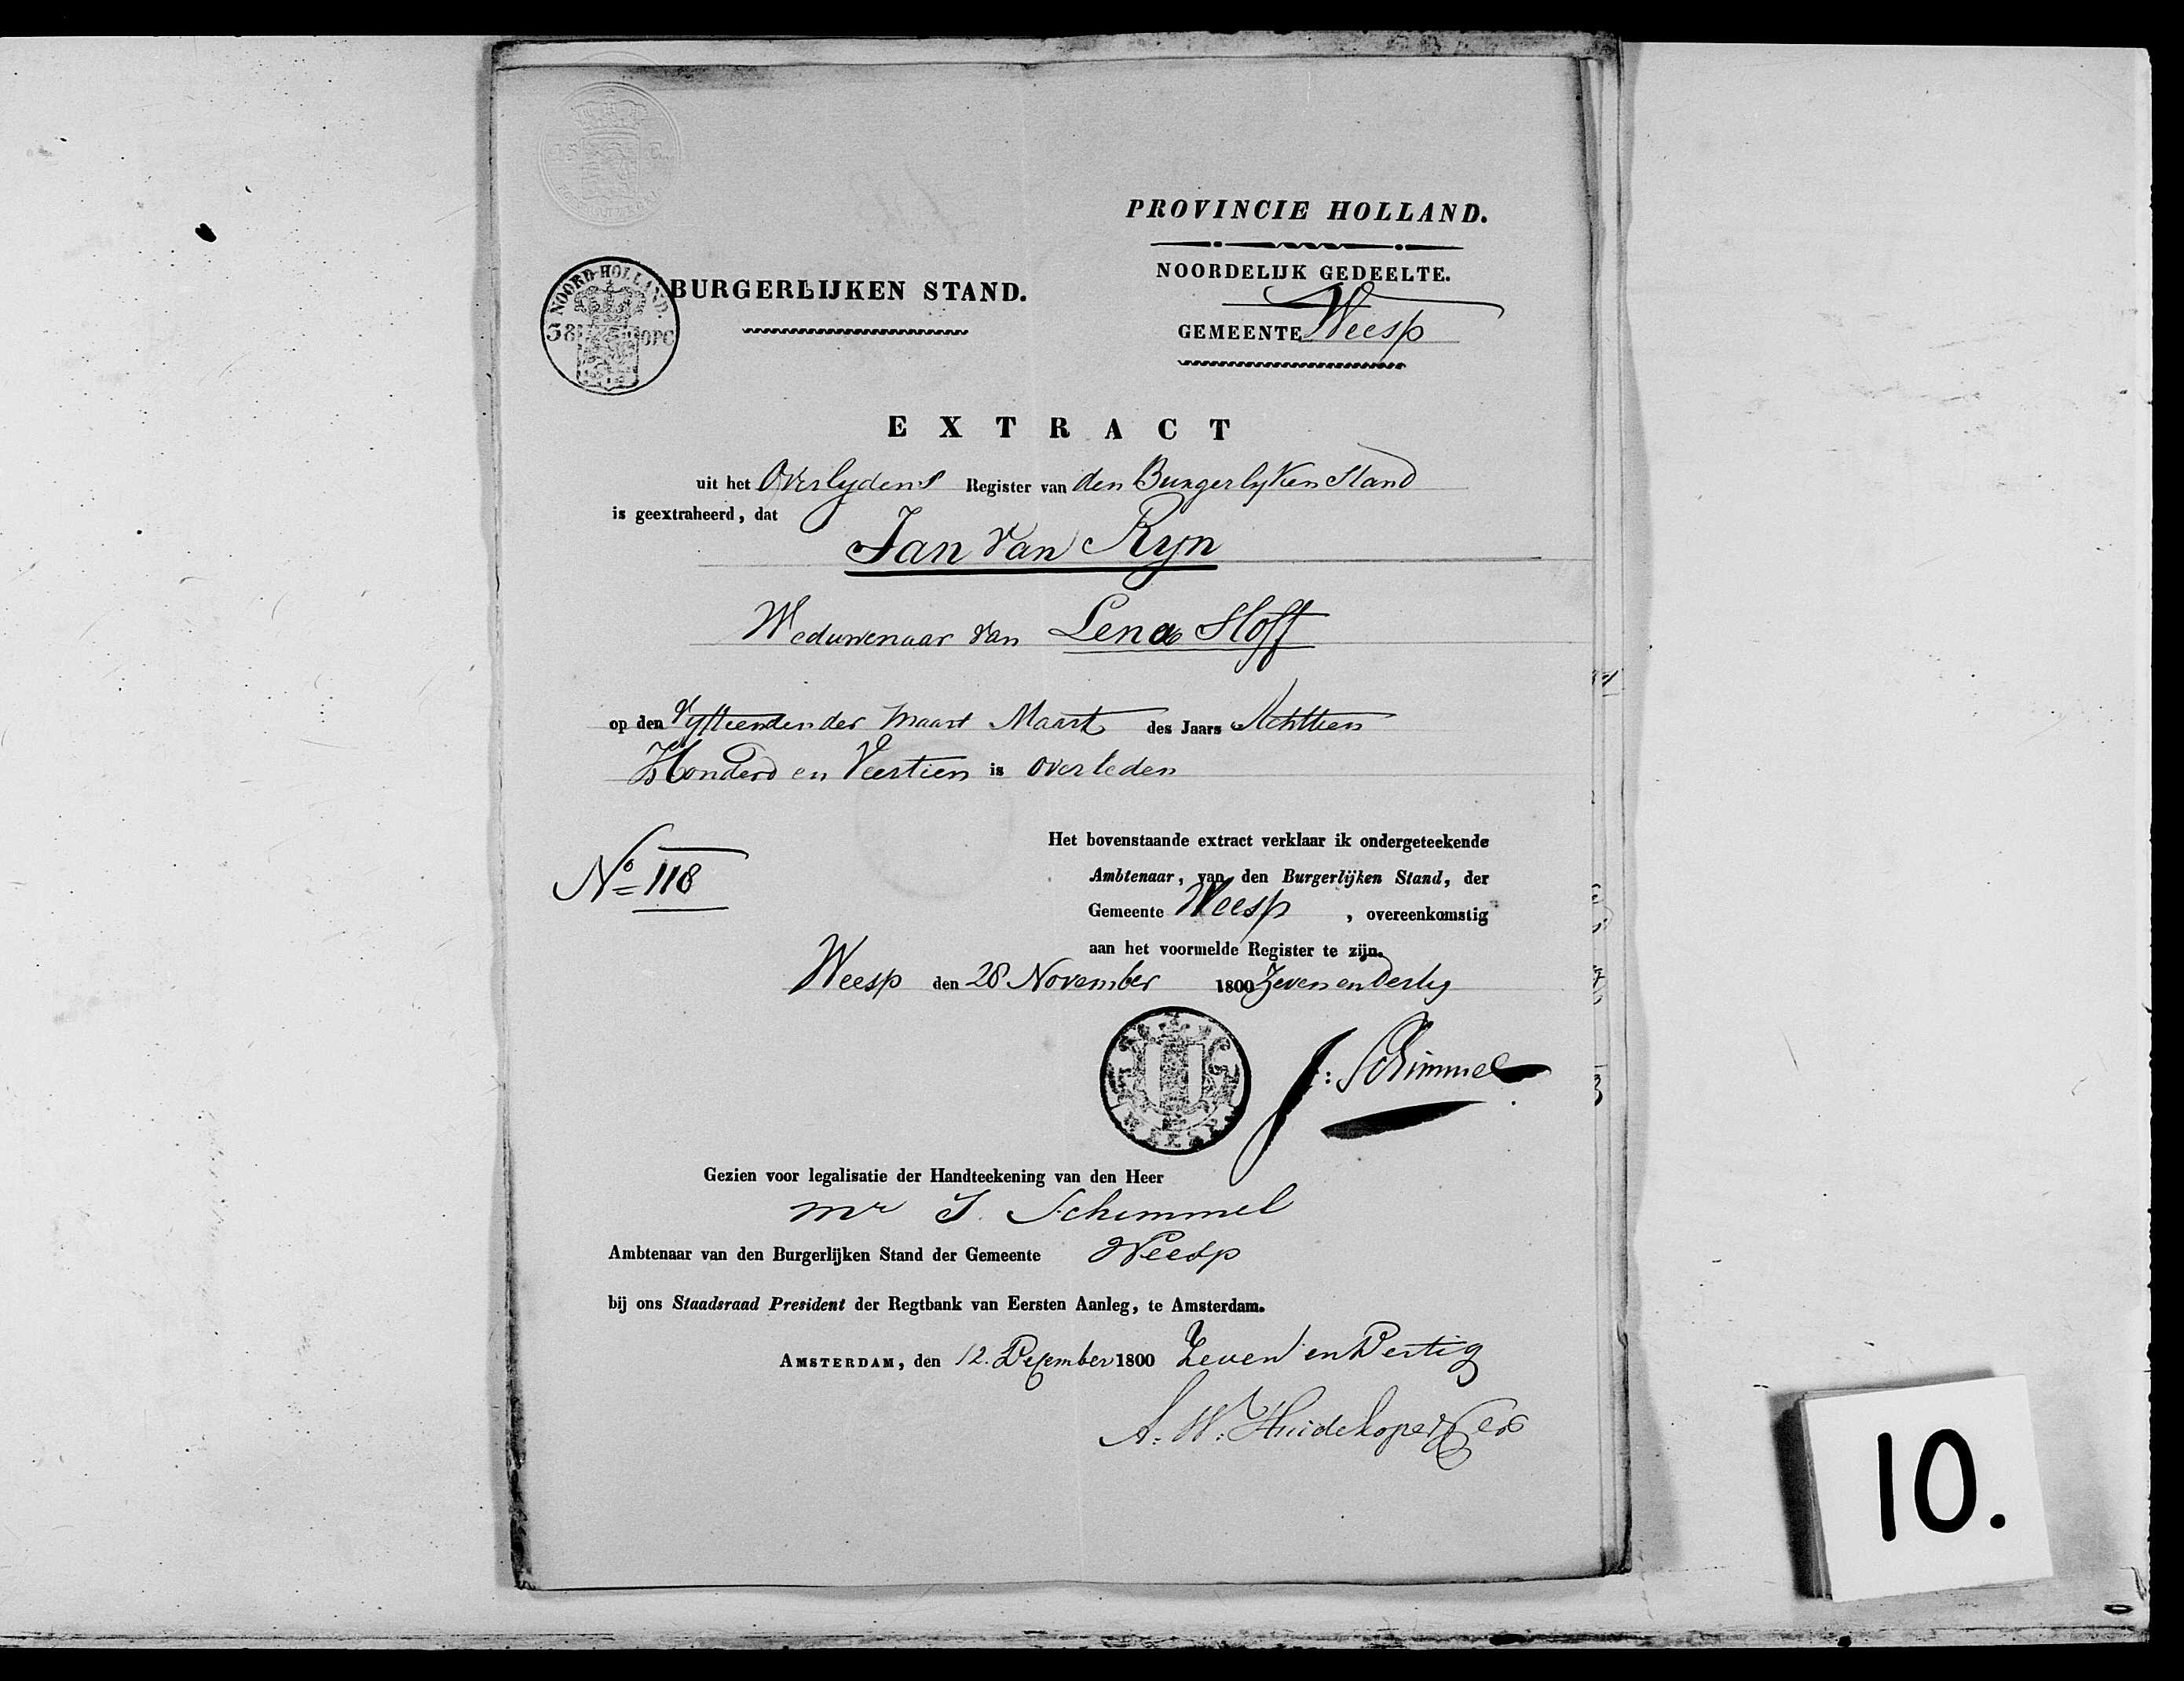 PROVINCIE HOLLAND.
NOORDELIJK GEDEELTE.
GEMEENTE Weesp
NOORD-HOLLAND.
38
OPC
BURGERLIJKEN STAND.
EXTRACT
uit het Overlydens Register van den Burgerlyken Stand
is geextraheerd, dat
Jan van Ryn
Weduwenaar van Lena Hoff
op den Vyftienden der maand Maart des Jaars Achttien
Honderd en Veertien is overleden
Het bovenstaande extract verklaar ik ondergeteekende
No 118
Ambtenaar, van den Burgerlijken Stand, der
Gemeente Weesp, overeenkomstig
aan het voormelde Register te zijn.
Weesp den 28 November 1800 Zeven en Dertig
J: Schimmel
Gezien voor legalisatie der Handteekening van den Heer
Mr J. Schimmel
Ambtenaar van den Burgerlijken Stand der Gemeente Weesp
bij ons Staadsraad President der Regtbank van Eersten Aanleg, te Amsterdam.
AMSTERDAM, den 12. December 1800 Zeven en Dertig
A: W: Huidekoper
10.